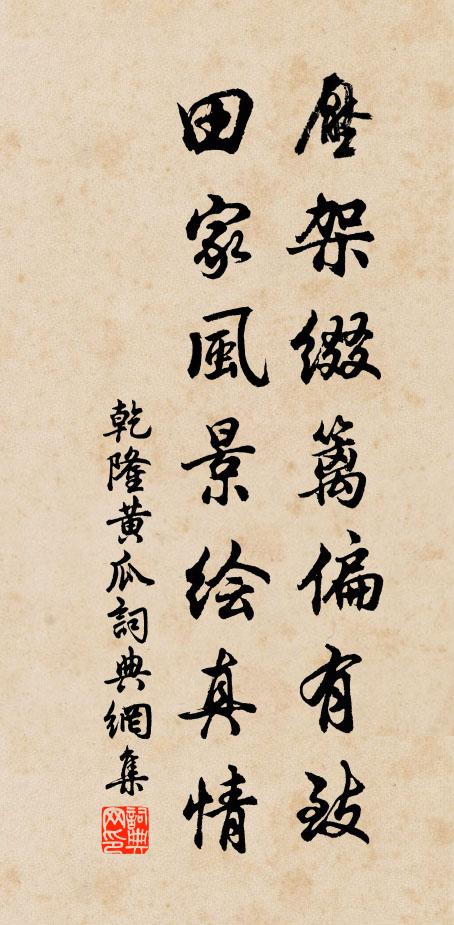 压架缀籬偏有致
田家風景绘真情
乾隆黄瓜詞典網集
詞典网印